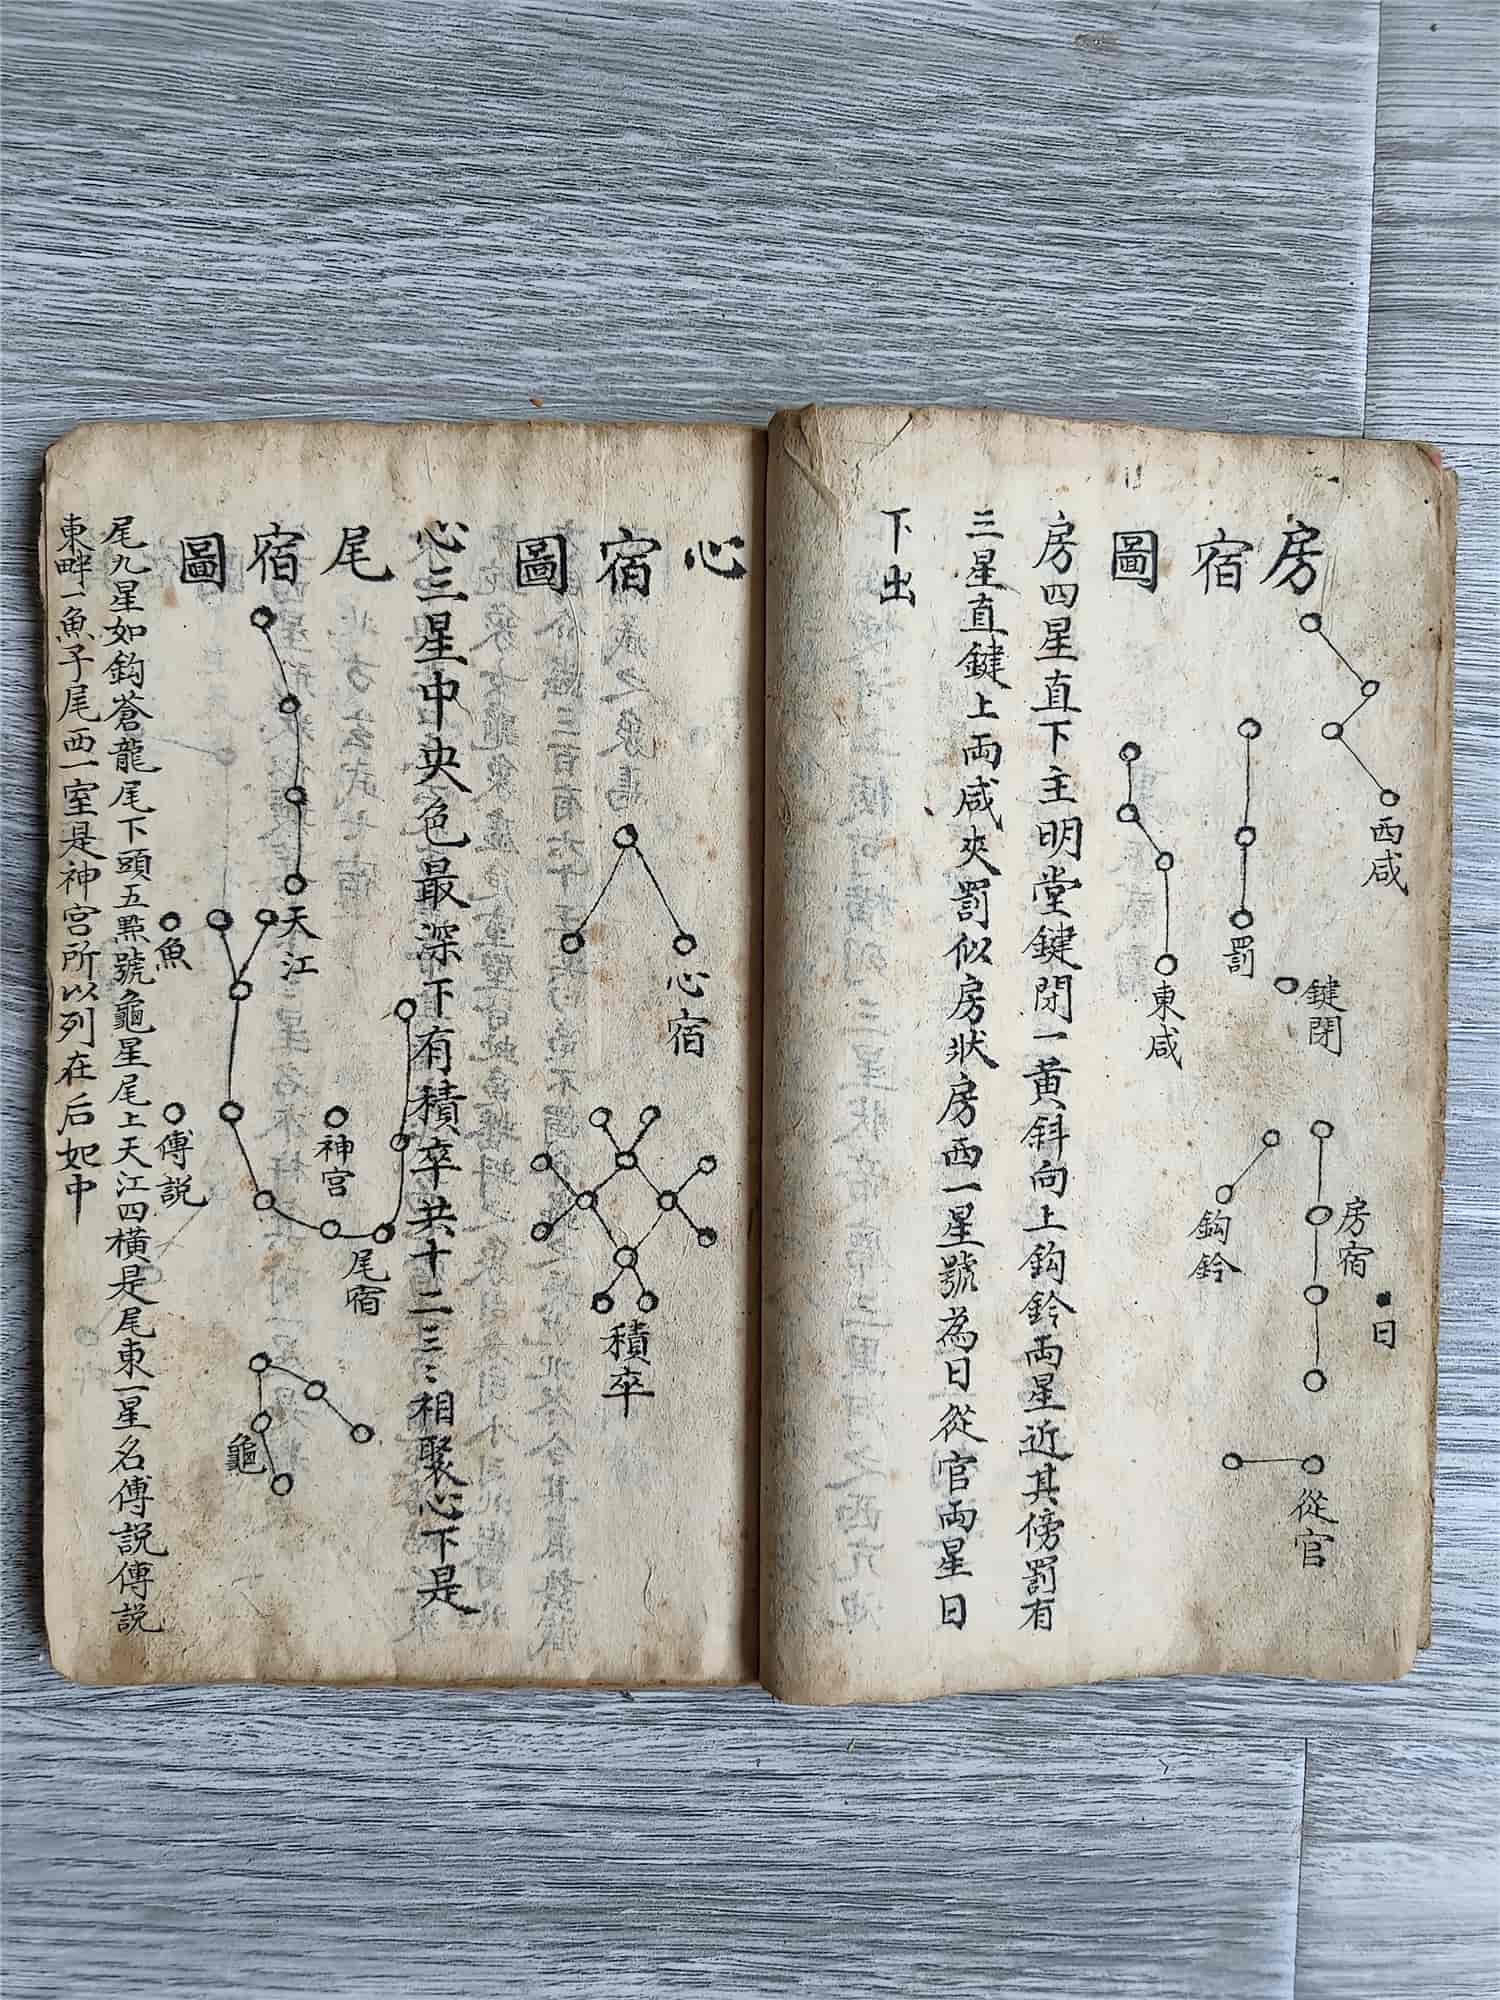 房宿圖
西咸
罰
鍵閉
東咸
房宿
鈎鈴
日
從官
房四星直下主明堂鍵閉一黃斜向上鈎鈴両星近其傍罰有
三星直鍵上両咸夾罰似房狀房西一星號為日從官両星日
下出
心宿圖
心宿
積卒
心三星中央色最深下有積卒共十二三〻相聚心下是
尾宿圖
天江
魚
神宮
傅説
尾宿
龜
尾九星如鈎蒼龍尾下頭五㸃號龜星尾上天江四横是尾東一星名傅説傅説
東畔一魚子尾西一室是神宮所以列在后妃中